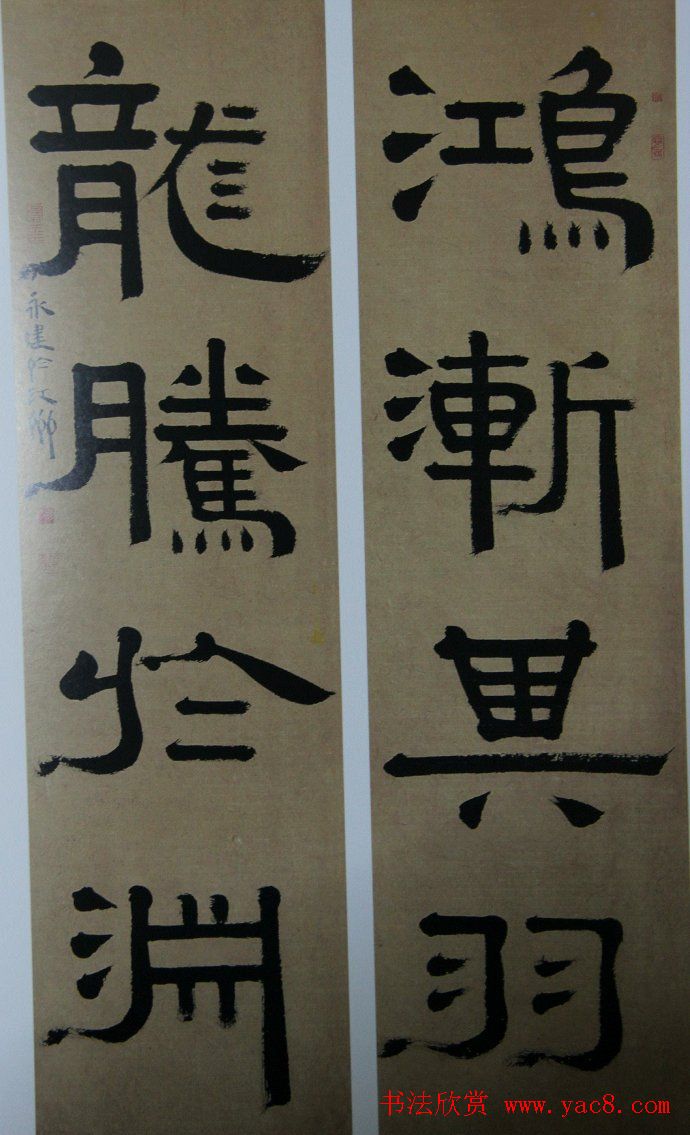 鴻漸其羽
龍騰於淵
永建於
书法欣赏 www.yac8.com